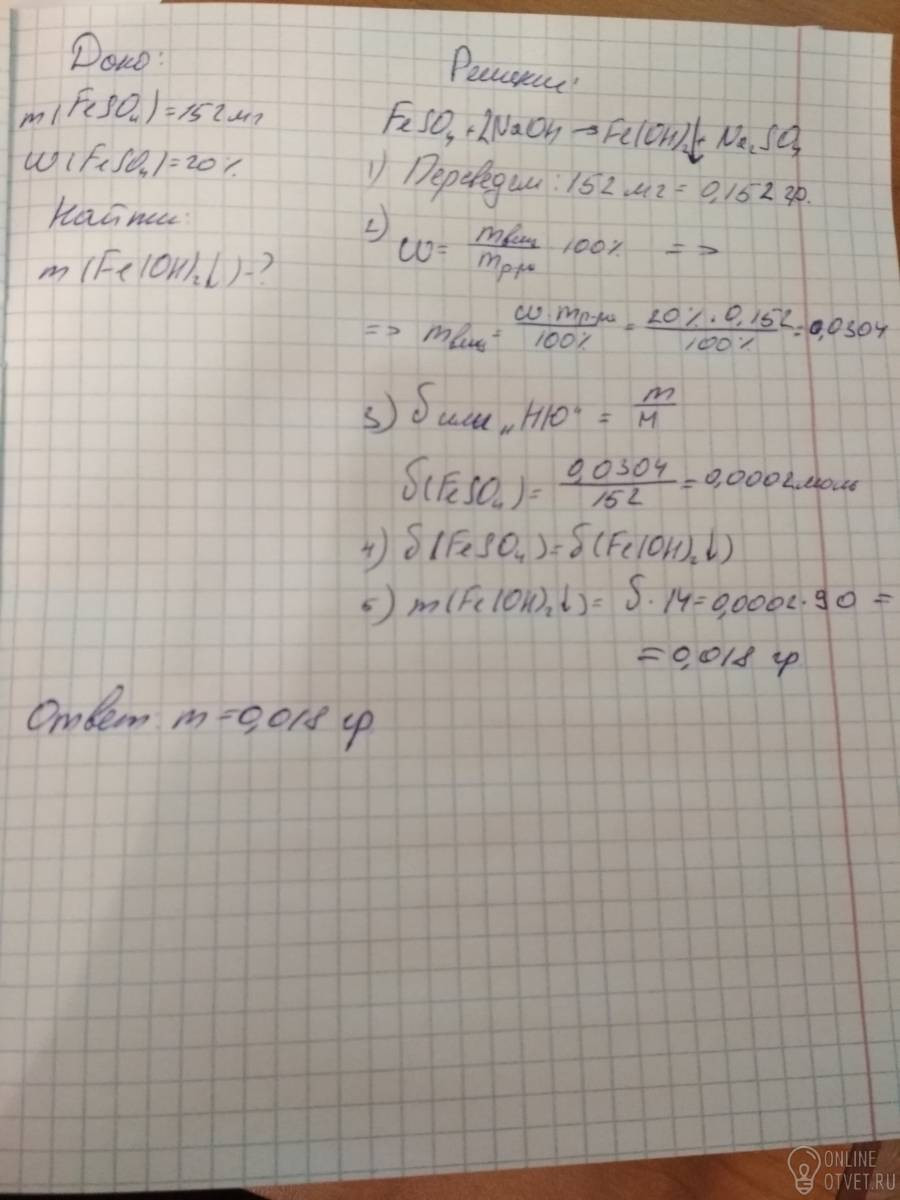 Дано:
m(FeSO₄)=152мг
W(FeSO₄)=20%
Найти:
m(Fe(OH)₂↓)-?
Решение:
FeSO₄+2NaOH→Fe(OH)₂↓+Na₂SO₄
1) Переведем: 152 мг = 0,152 гр.
2) W= mвещ/mр-ра 100% =>
=> mвещ= W·mр-ра/100% = 20%·0,152/100% =0,0304
3) б или „НЮ“ = m/M
б(FeSO₄)= 0,0304/152 =0,0002моль
4) б(FeSO₄)=б(Fe(OH)₂↓)
5) m(Fe(OH)₂↓)= б·M=0,0002·90 =
=0,018 гр
Ответ: m=0,018 гр
ONLINE
OTVET.RU